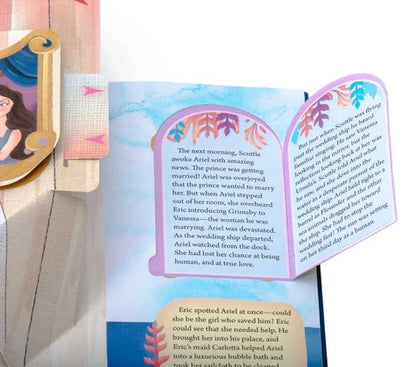 The next morning, Scuttle
awoke Ariel with amazing
news. The prince was getting
married! Ariel was overjoyed
that the prince wanted to marry
her. But when Ariel stepped
out of her room, she overheard
Eric introducing Grimsby to
Vanessa—the woman he was
marrying. Ariel was devastated.
As the wedding ship departed,
Ariel watched from the dock.
She had lost her chance at being
human, and at true love.
But just when Scuttle was flying
past the wedding ship he heard
familiar singing. He saw Vanessa
looking in the mirror, but the
reflection looking back at her was
Ursula's. Scuttle told Ariel what
he saw, and she dove into the
water in a desperate pursuit of the
wedding ship. Ariel held tight to a
barrel as Flounder and the other
sea animals dragged her toward
the ship. She had to stop the
wedding fast! The sun was setting
on her third day as a human.
Eric spotted Ariel at once—could
she be the girl who saved him? Eric
could see that she needed help. He
brought her into his palace, and
Eric's maid Carlotta helped Ariel
into a luxurious bubble bath and
took her sailcloth to be cleaned